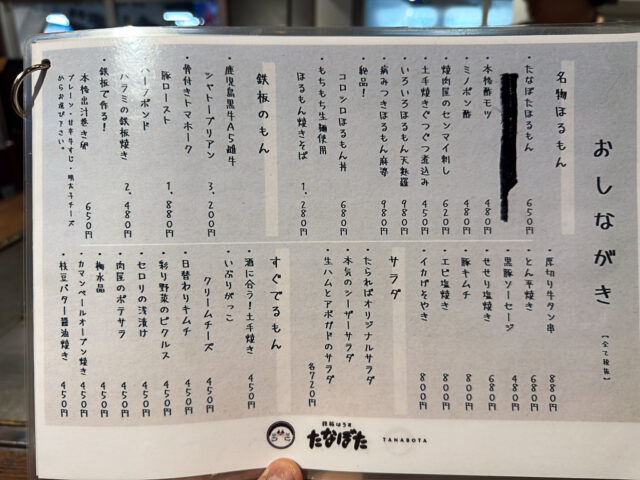 おしながき
【全て税抜】
名物ほるもん
・たなぼたほるもん 650円
・本格酢モツ 480円
・ミノポン酢 480円
・焼肉屋のセンマイ刺し 620円
・土手焼きぐつぐつ煮込み 450円
・いろいろほるもん天麩羅 980円
・病みつきほるもん麻婆 980円
・絶品!
コロシロほるもん丼 680円
・もちもち生麺使用
ほるもん焼きそば 1,280円
鉄板のもん
・鹿児島黒牛A5雌牛
シャトーブリアン 3,200円
・骨付きトマホーク
豚ロースト 1,880円
・ハーフポンド
ハラミの鉄板焼き 2,480円
・鉄板で作る!
本格出汁巻き卵 650円
プレーン・甘辛牛すじ・明太子チーズ
からお選び下さい。
・厚切り牛タン串 880円
・とん平焼き 680円
・黒豚ソーセージ 480円
・せせり塩焼き 680円
・豚キムチ 800円
・エビ塩焼き 800円
・イカげそやき 800円
サラダ
・たらればオリジナルサラダ
・本気のシーザーサラダ
・生ハムとアボガドのサラダ
各720円
すぐでるもん
・酒に合う!土手焼き 450円
・いぶりがっこ
クリームチーズ 450円
・日替わりキムチ 450円
・彩り野菜のピクルス 450円
・セロリの浅漬け 450円
・肉屋のポテサラ 450円
・梅水晶 450円
・カマンベールオーブン焼き 450円
・枝豆バター醤油焼き 450円
たなぼた
TANABOTA